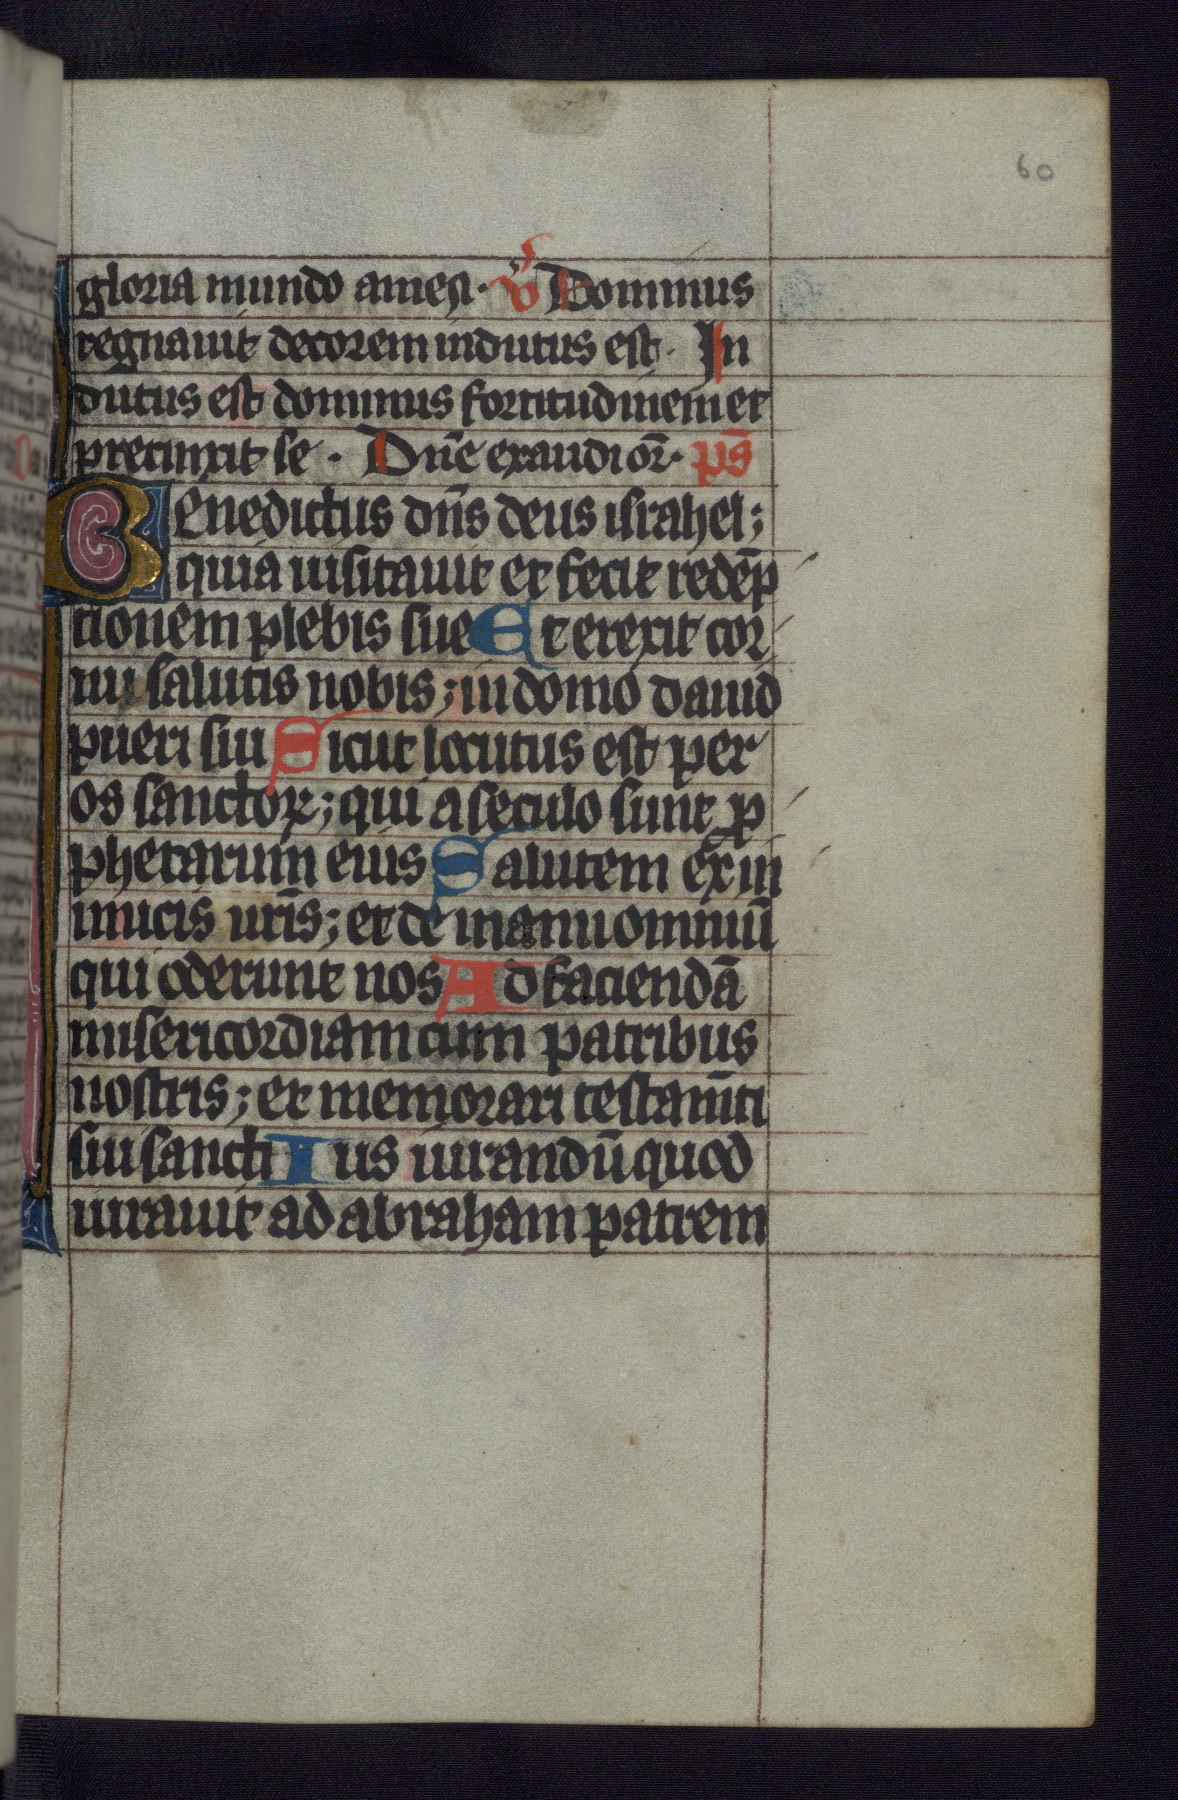 60
gloria mundo amen. v̄ Dominus
regnauit decorem indutus est. In
dutus est dominus fortitudinem et
precinxit se. Dn̄e exaudi or̄. ps̄
Benedictus dn̄s deus israhel;
quia uisitauit et fecit redēp
tionem plebis sue Et erexit cor
nu salutis nobis; in domo dauid
pueri sui Sicut locutus est per
os sanctoꝝ; qui a seculo sunt ꝓ
phetarum eius Salutem ex in
imicis nr̄is; et de manu omniū
qui oderunt nos Ad faciendā
misericordiam cum patribus
nostris; et memorari testam̄ti
sui sancti Ius iurandū quod
iurauit ad abraham patrem